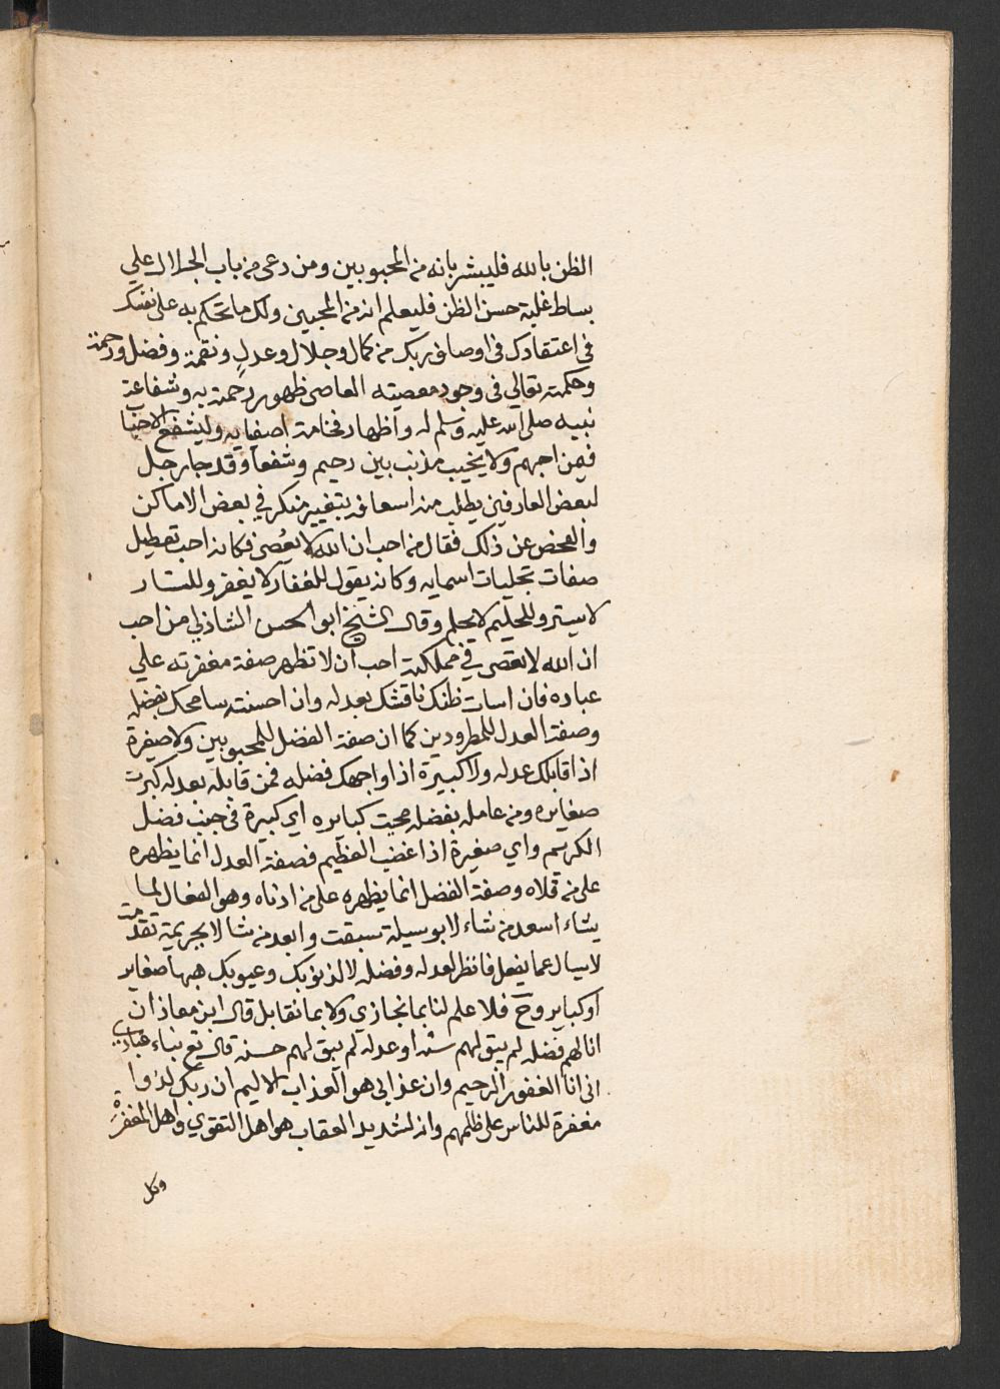 الظن بالله فليبشر بانه من المحبوبين ومن دعي من باب الجلال علي
بساط غلبة حسن الظن فليعلم انه من المحبين ولك ما تحكم به على نفسك
في اعتقادك في اوصاف ربك من كمال وجلال وعدل ونقمة وفضل ورحمة
وحكمته تعالي في وجود معصيته العاصى ظهور رحمته به وشفاعة
نبيه صلى الله عليه وسلم له واظهار فخامة اصفيايه وليشفع الاحبا
فيمن اجهم ولا يخيب مذنب بين رحيم وشفعا وقد جا رجل
لبعض العارفين يطلب منه اسعافه بتغيير منكر في بعض الاماكن
والفحص عن ذلك فقال من احب ان الله لا يعصى فكانه احب تعطيل
صفات تجليات اسمايه وكانه يقول للغفار لا يغفر وللستار
لا يستر وللحليم لا يحلم وقال الشيخ ابو الحسن الشاذلي من احب
ان الله لا يعصى في مملكته احب ان لا تظهر صفة مغفرته علي
عباده فان اسات ظنك ناقشك بعدله وان احسنته سامحك بفضله
وصفة العدل للمطرودين كما ان صفة الفضل للمحبوبين ولا صغيرة
اذا قابلك عدله ولا كبيرة اذا واجهك فضله فمن قابله بعدله كبرت
صغايره ومن عامله بفضله محيت كبايره اي كبيرة في جنب فضل
الكريم واي صغيرة اذا غضب العظيم فصفة العدل انما يظهره
على من قلاه وصفة الفضل انما يظهره على من ادناه وهو الفعال لما
يشاء اسعد من شاء لا بوسيلة سبقت وابعد من شا لا بجريمة تقدمت
لا يسال عما يفعل فانظر لعدله وفضله لا لذنوبك وعيوبك هبها صغاير
او كباير وح فلا علم لنا بما نجازي ولا بما نقابل قال ابن معاذ ان
انالهم فضله لم يبق لهم سئة او عدله لم يبق لهم حسنة قال تع نباء عبادي
اني انا الغفور الرحيم وان عذابي هو العذاب الاليم ان ربك لذوا
مغفرة للناس على ظلمهم وانه لشديد العقاب هو اهل التقوي واهل المغفرة
وكل